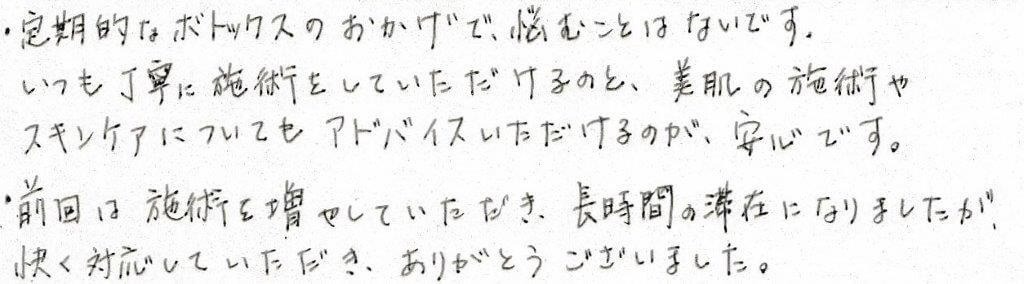 ・定期的なボトックスのおかげで、悩むことはないです.
いつも丁寧に施術をしていただけるのと、美肌の施術や
スキンケアについてもアドバイスいただけるのが、安心です。
・前回は施術を増やしていただき、長時間の滞在になりましたが、
快く対応していただき、ありがとうございました。